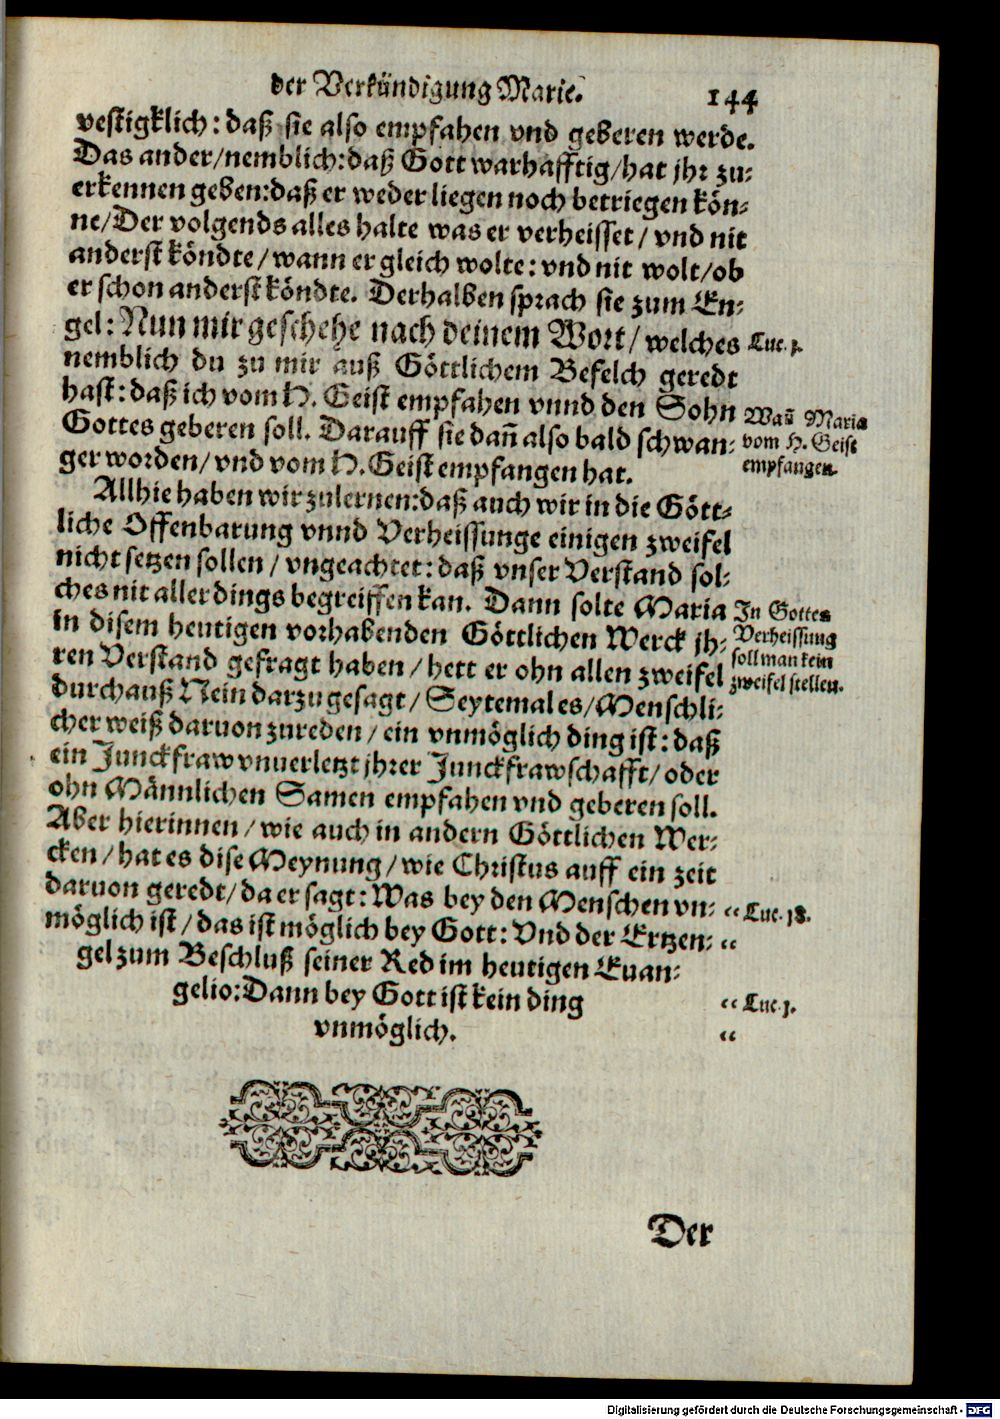 der Verkündigung Marie. 144
vestigklich: daß sie also empfahen vnd geberen werde.
Das ander/nemblich: daß Gott warhafftig/hat jhr zu-
erkennen geben: daß er weder liegen noch betriegen kön-
ne/Der volgends alles halte was er verheisset/ vnd nit
anderst köndte/wann er gleich wolte: vnd nit wolt/ob
er schon anderst köndte. Derhalben sprach sie zum En-
gel: Nun mir geschehe nach deinem Wort/ welches
Luc. 1.
nemblich du zu mir auß Göttlichem Befelch geredt
hast: daß ich vom H. Geist empfahen vnnd den Sohn
Gottes geberen soll. Darauff sie dañ also bald schwan-
ger worden/ vnd vom H. Geist empfangen hat.
Wañ Maria
vom H. Geist
empfangen.
Allhie haben wir zulernen: daß auch wir in die Gött-
liche Offenbarung vnnd Verheissunge einigen zweifel
nicht setzen sollen/ vngeachtet: daß vnser Verstand sol-
ches nit aller dings begreiffen kan. Dann solte Maria
in disem heutigen vorhabenden Göttlichen Werck jh-
ren Verstand gefragt haben/ hett er ohn allen zweifel
durchauß Nein darzu gesagt/ Seytemal es/Menschli-
In Gottes
Verheissung
soll man kein
zweifel stellen.
cher weiß daruon zureden/ ein vnmöglich ding ist: daß
ein Junckfraw vnuerletzt jhrer Junckfrawschafft/ oder
ohn Männlichen Samen empfahen vnd geberen soll.
Aber hierinnen/ wie auch in andern Göttlichen Wer-
cken/ hat es dise Meynung/ wie Christus auff ein zeit
daruon geredt/ da er sagt: Was bey den Menschen vn-
„ Luc. 18.
möglich ist/ das ist möglich bey Gott: Vnd der Ertzen-
„
gel zum Beschluß seiner Red im heutigen Euan-
gelio: Dann bey Gott ist kein ding
„ Luc. 1.
vnmöglich.
„
Der
Digitalisierung gefördert durch die Deutsche Forschungsgemeinschaft - DFG